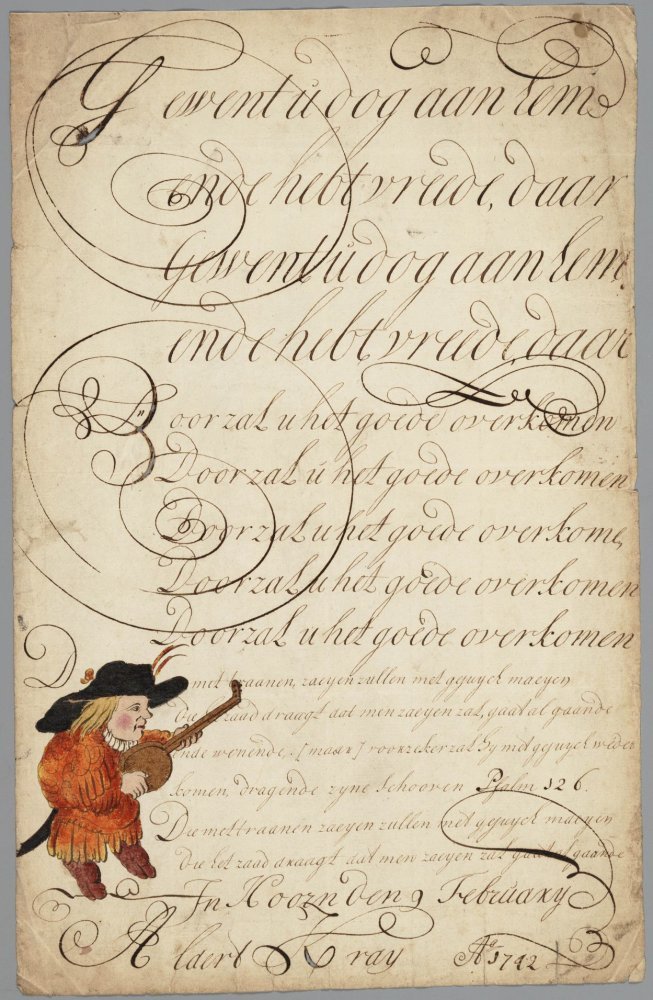 Gewent u dog aan hem
ende hebt vreede, daar
Gewent u dog aan hem
ende hebt vreede, daar
Door zal u het goede overkomen
Doorzal u het goede overkomen
Doorzal u het goede overkome,
Doorzal u het goede overkomen
Doorzal u het goede overkomen
D met traanen, zaeyen zullen met gejuych maeyen
die het zaad draagt dat men zaeyen zal, gaat al gaande
ende weenende, [maar] voorzeker zal hy met gejuych weder
komen, dragende zyne schooven Psalm 126.
Die met traanen zaeyen zullen met gejuych maeyen
die het zaad draagt dat men zaeyen zal gaat al gaande
In Hoorn den 9 February
Aldert Kray Ao 1742
63